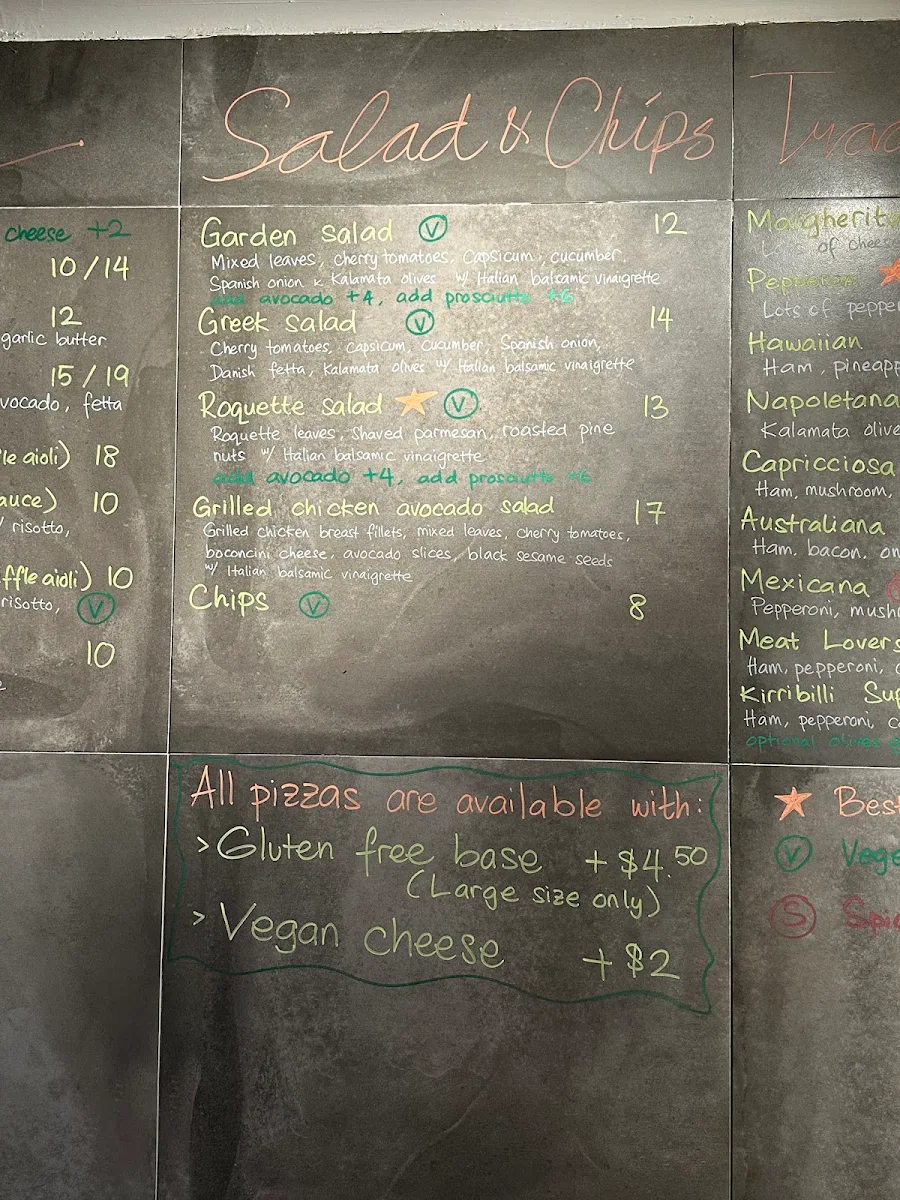 Salad & Chips
cheese +2
10/14
12
garlic butter
15/19
vocado, fetta
le aioli) 18
auce) 10
risotto,
ffle aioli) 10
risotto, V
10
Garden salad V 12
Mixed leaves, cherry tomatoes, Capsicum, cucumber,
Spanish onion & Kalamata olives w/ Italian balsamic vinaigrette
add avocado +4, add prosciutto +6
Greek salad V 14
Cherry tomatoes, capsicum, cucumber, Spanish onion,
Danish fetta, Kalamata olives w/ Italian balsamic vinaigrette
Roquette salad V 13
Roquette leaves, Shaved parmesan, roasted pine
nuts w/ Italian balsamic vinaigrette
add avocado +4, add prosciutto +6
Grilled chicken avocado salad 17
Grilled chicken breast fillets, mixed leaves, cherry tomatoes,
boconcini cheese, avocado slices, black sesame seeds
w/ Italian balsamic vinaigrette
Chips V 8
All pizzas are available with:
> Gluten free base +$4.50
(Large size only)
> Vegan cheese +$2
Trad
Margherita
of cheese
Pepperoni
Lots of pepper
Hawaiian
Ham, pineapp
Napoletana
Kalamata olive
Capricciosa
Ham, mushroom,
Australiana
Ham, bacon, on
Mexicana
Pepperoni, mush
Meat Lovers
Ham, pepperoni,
Kirribilli Sup
Ham, pepperoni, c
optional olives
Best
V Vege
S Spic